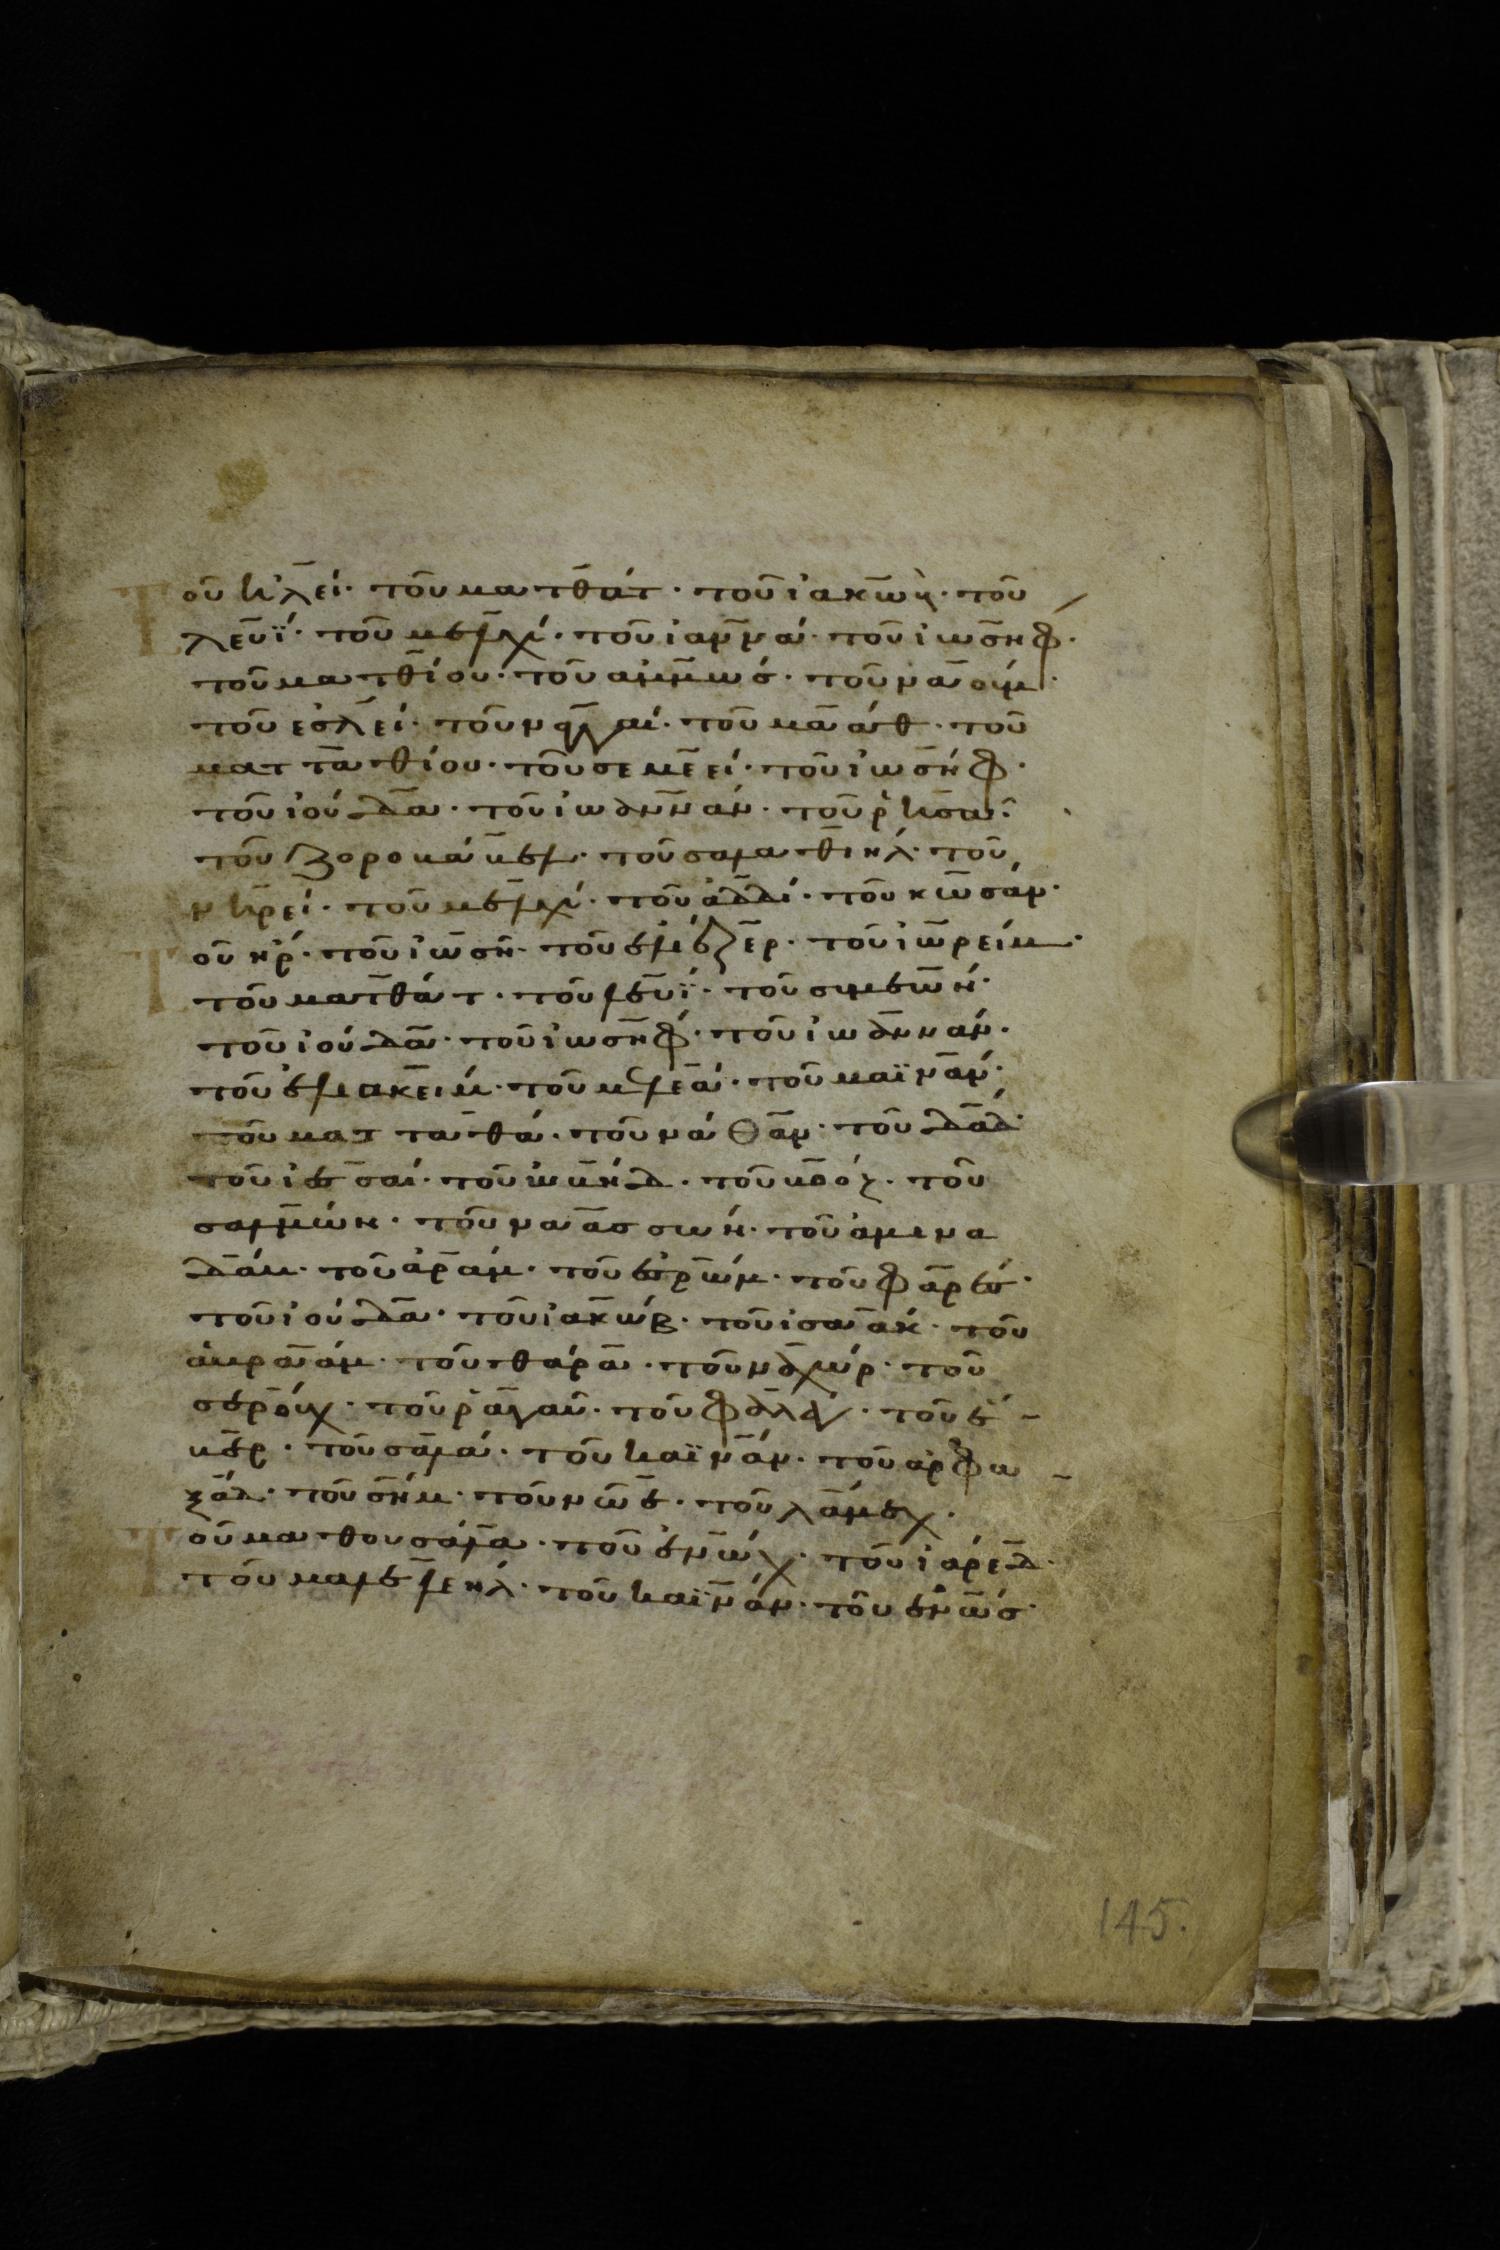 Τοῦ ἡλεί· τοῦ ματθάτ· τοῦ ἰακὼβ· τοῦ
λευΐ· τοῦ μελχί· τοῦ ἰαννά· τοῦ ἰωσηφ·
τοῦ ματθίου· τοῦ ἀμμώς· τοῦ ναούμ·
τοῦ ἐσλεί· τοῦ ναγγαί· τοῦ μαάθ· τοῦ
ματταθίου· τοῦ σεμεεί· τοῦ ἰωσήφ·
τοῦ ἰούδα· τοῦ ἰωαννάν· τοῦ ῥησα·
τοῦ ζοροβάβελ· τοῦ σαλαθιηλ· τοῦ
νηρεί· τοῦ μελχί· τοῦ ἀδδί· τοῦ κωσάμ·
Τοῦ ἠρ· τοῦ ἰωσῆ· τοῦ ἐλιέζερ· τοῦ ἰωρείμ·
τοῦ ματθάτ· τοῦ λευΐ· τοῦ συμεών·
τοῦ ἰούδα· τοῦ ἰωσήφ· τοῦ ἰωαννάν·
τοῦ ἐλιακείμ· τοῦ μελεά· τοῦ μαϊνάν·
τοῦ ματταθά· τοῦ νάθαν· τοῦ δαδ·
τοῦ ἰεσσαί· τοῦ ὠβήδ· τοῦ βοόζ· τοῦ
σαλμών· τοῦ ναασσών· τοῦ ἀμινα
δάμ· τοῦ ἀράμ· τοῦ ἐσρώμ· τοῦ φαρές·
τοῦ ἰούδα· τοῦ ἰακώβ· τοῦ ἰσαάκ· τοῦ
ἀβραάμ· τοῦ θάρα· τοῦ ναχώρ· τοῦ
σερούχ· τοῦ ῥαγαῦ· τοῦ φαλέγ· τοῦ ἔ
βερ· τοῦ σαλά· τοῦ καϊνάν· τοῦ ἀρφα
ξάδ· τοῦ σήμ· τοῦ νῶε· τοῦ λάμεχ·
Τοῦ μαθουσάλα· τοῦ ἐνώχ· τοῦ ἰάρεδ·
τοῦ μαλελεηλ· τοῦ καϊνάν· τοῦ ἐνώς·
145.